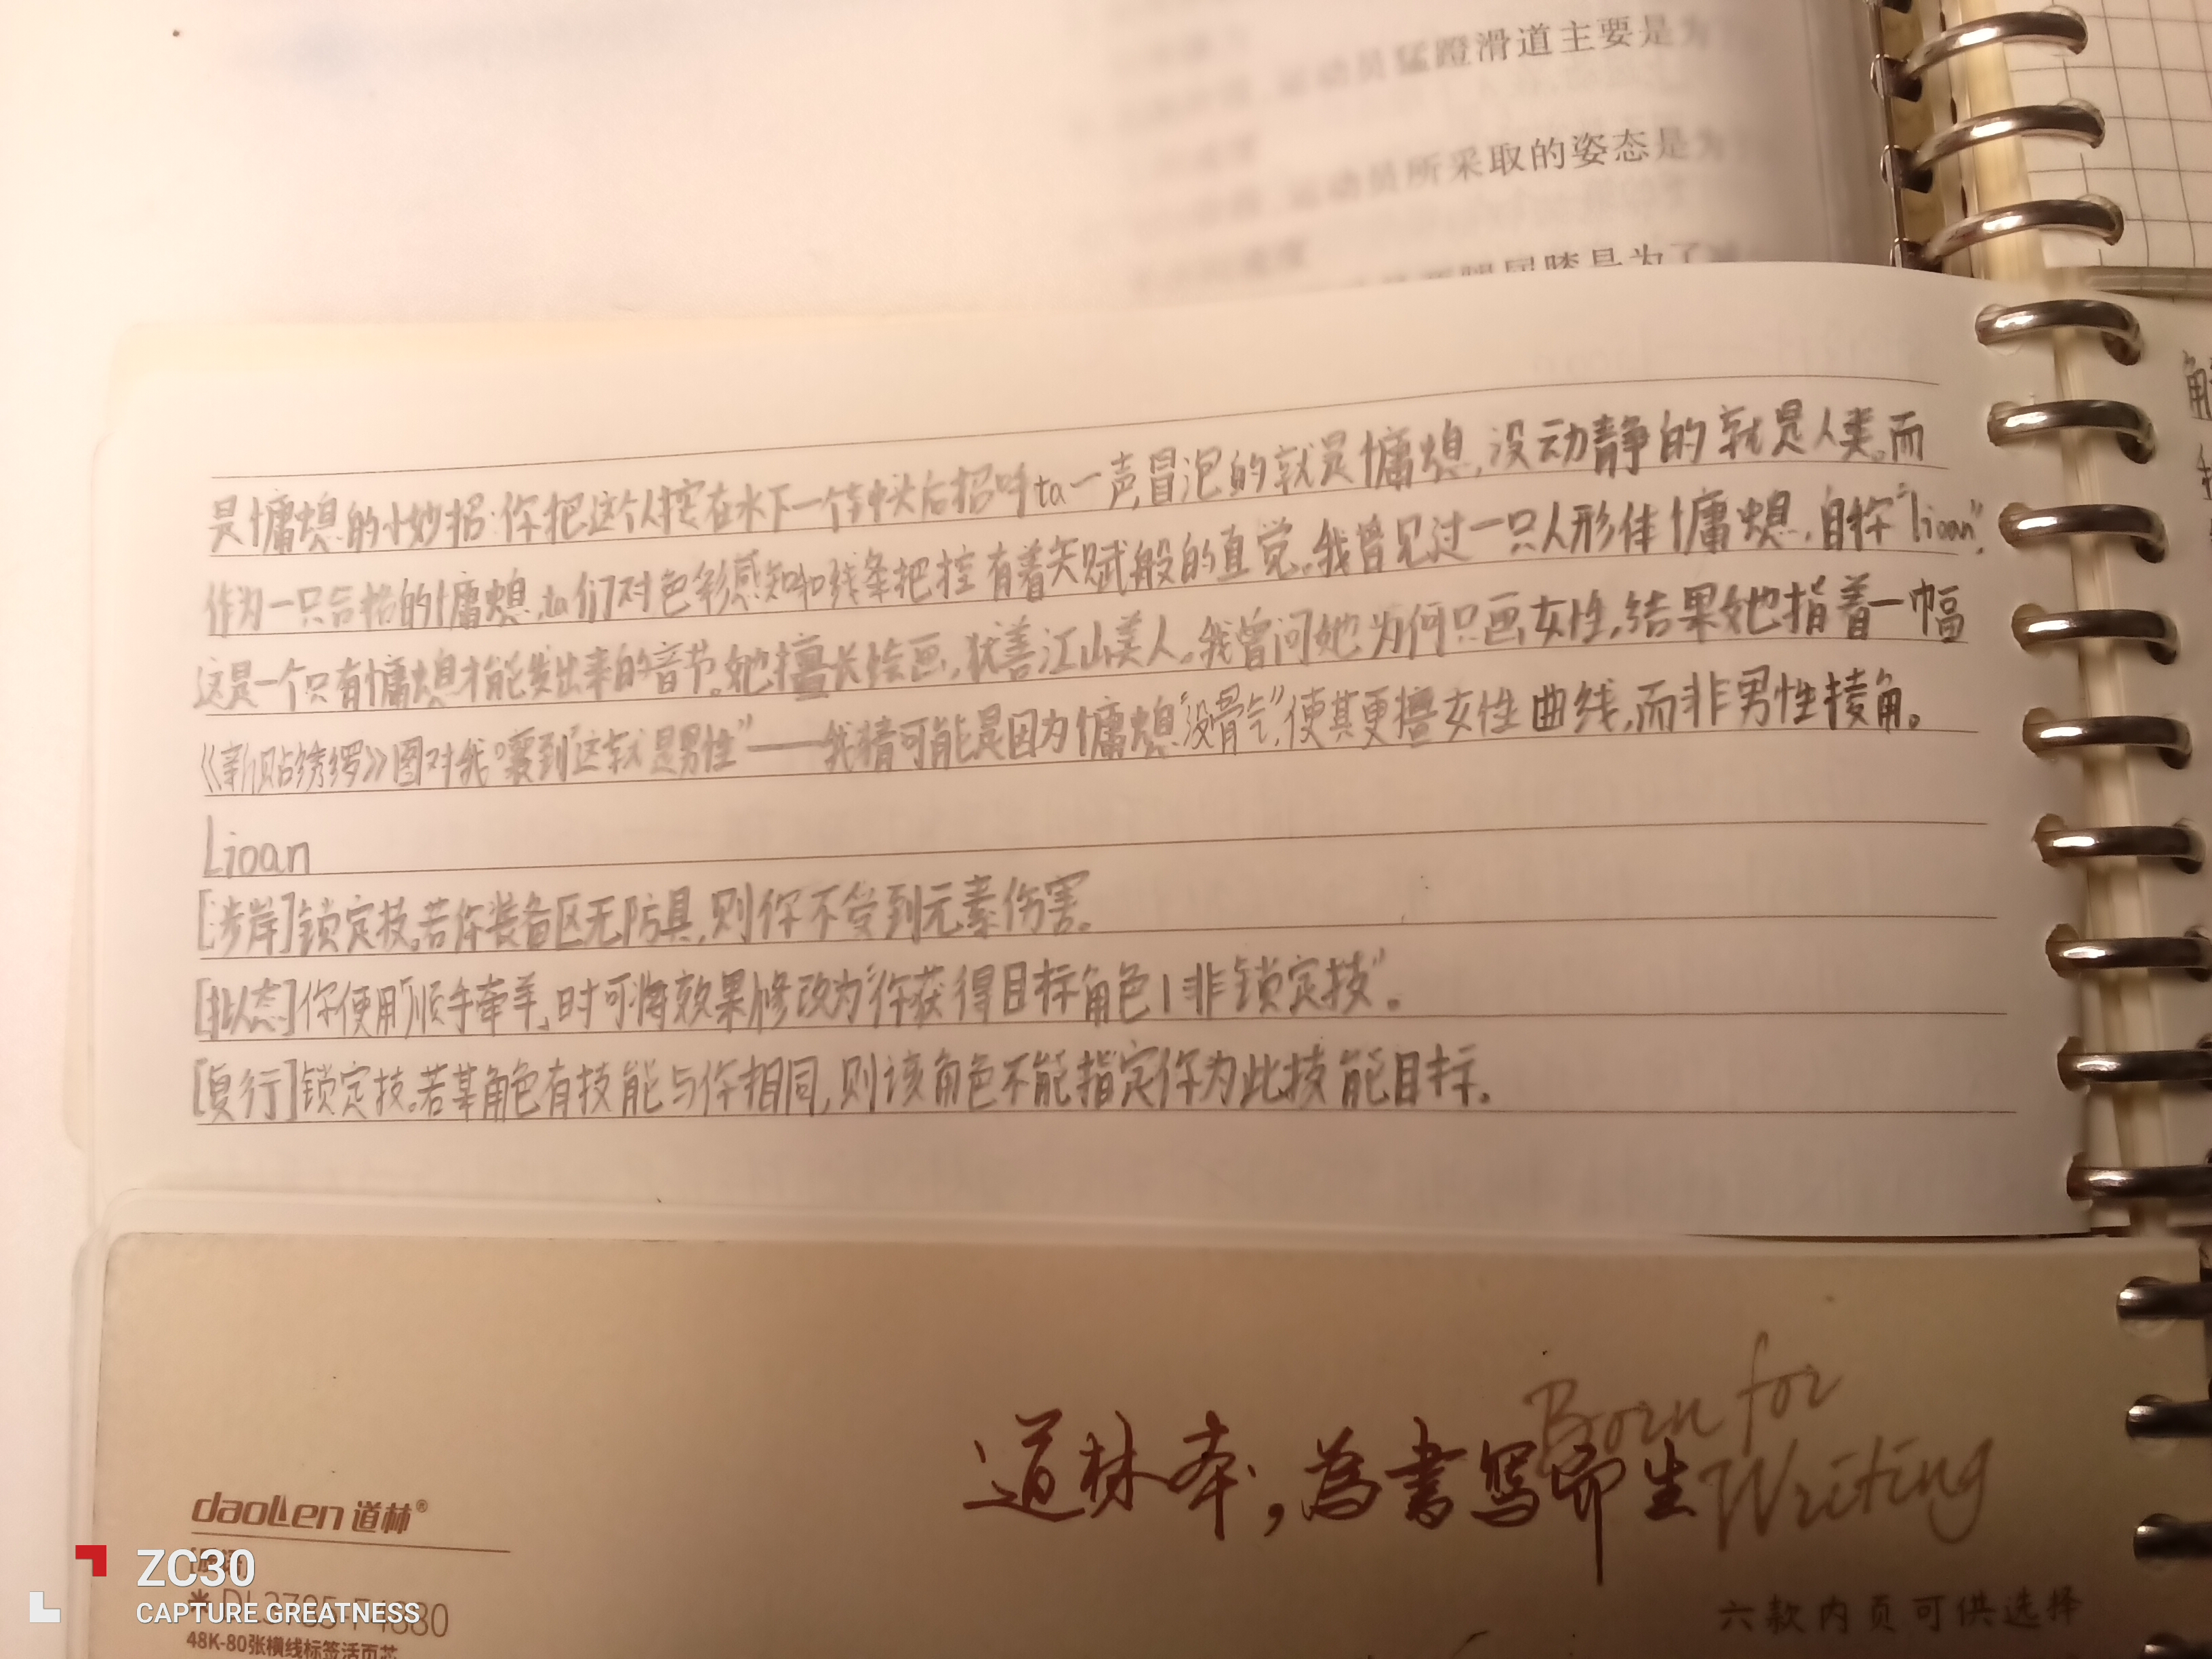 运动员猛蹬滑道主要是为
运动员所采取的姿态是为
屈膝是为了
是慵螅的小妙招:你把这个人按在水下一个钟头后招呼ta一声,冒泡的就是慵螅,没动静的就是人类。而
作为一只合格的慵螅,ta们对色彩感知和线条把控有着天赋般的直觉。我曾见过一只人形佳慵螅,自称"lioan",
这是一个只有慵螅才能发出来的音节。她擅长绘画,犹善江山美人。我曾问她为何只画女性,结果她指着一幅
《新贴绣罗》图对我嚷到"这就是男性"——我猜可能是因为慵螅"没骨气",使其更擅女性曲线,而非男性棱角。
Lioan
[涉岸]锁定技。若你装备区无防具,则你不受到元素伤害。
[拟态]你使用「顺手牵羊」时可将效果修改为"你获得目标角色1非锁定技"。
[复行]锁定技。若某角色有技能与你相同,则该角色不能指定你为此技能目标。
Born for
道林本,為書寫而生
Writing
daoLen 道林®
48K-80张横线标签活页芯
六款内页可供选择
ZC30
CAPTURE GREATNESS